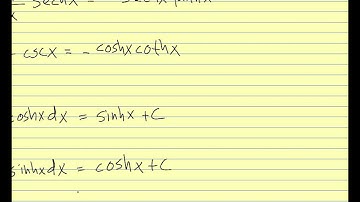 sechx = - sechx
x
cscx = - coshx cothx
coshxdx = sinhx + C
sinhxdx = coshx + C